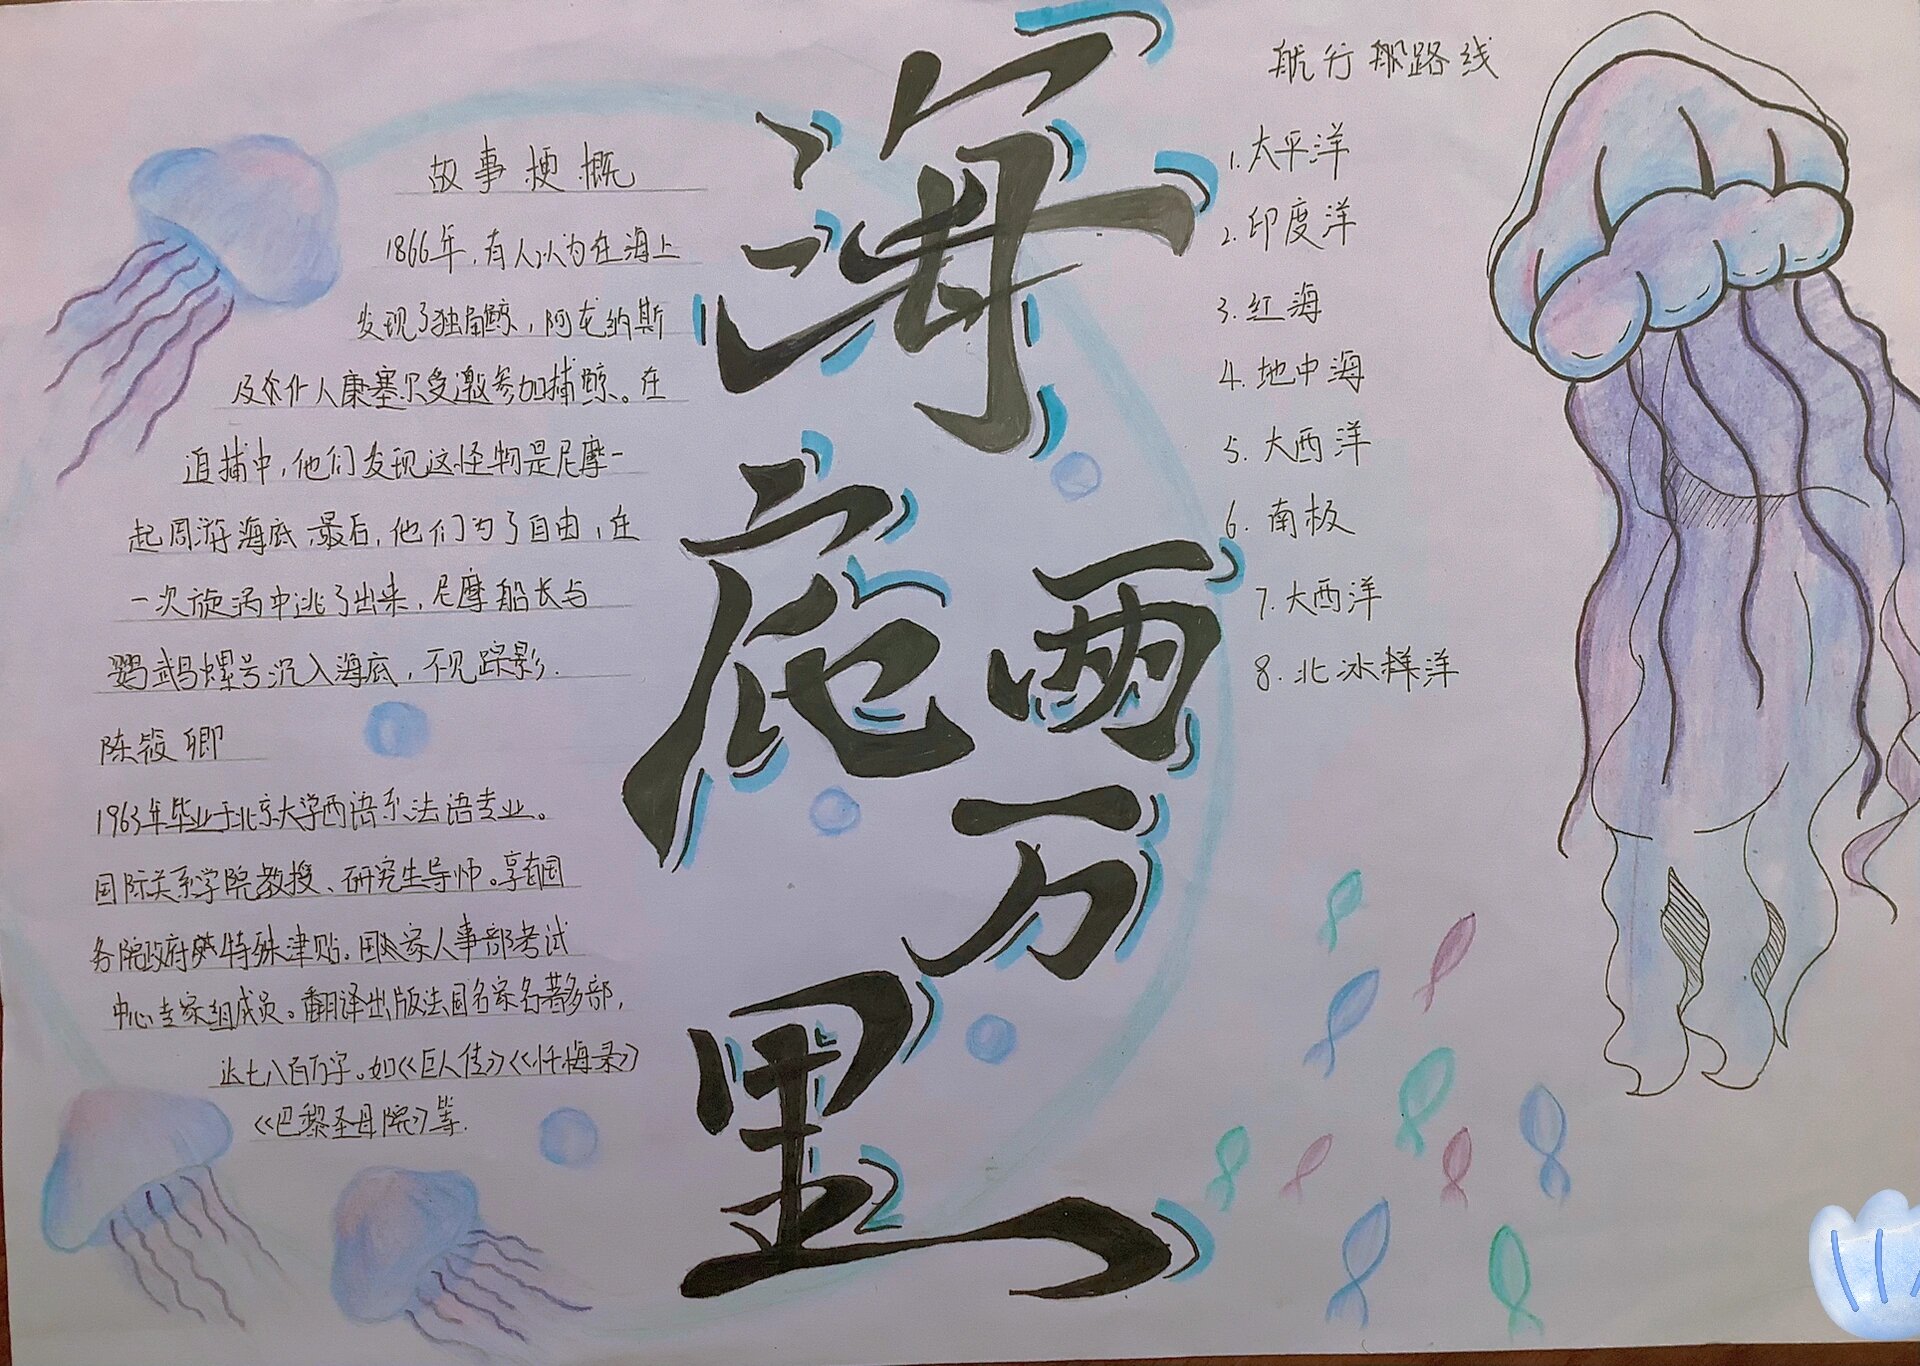 海底两万里
故事梗概
1866年,有人以为在海上
发现了独角鲸,阿龙纳斯
及众仆人康塞尔受邀参加捕鲸。在
追捕中,他们发现这怪物是尼摩一
起周游海底.最后,他们为了自由,在
一次旋涡中逃了出来,尼摩船长与
鹦鹉螺号沉入海底,不见踪影.
陈筱卿
1963年毕业于北京大学西语系法语专业。
国际关系学院教授、研究生导师。享有国
务院政府特殊津贴。国家人事部考试
中心专家组成员。翻译出版法国名家名著多部,
达七八百万字。如《巨人传》《忏悔录》
《巴黎圣母院》等.
航行路线
1.太平洋
2.印度洋
3.红海
4.地中海
5.大西洋
6.南极
7.大西洋
8.北冰洋